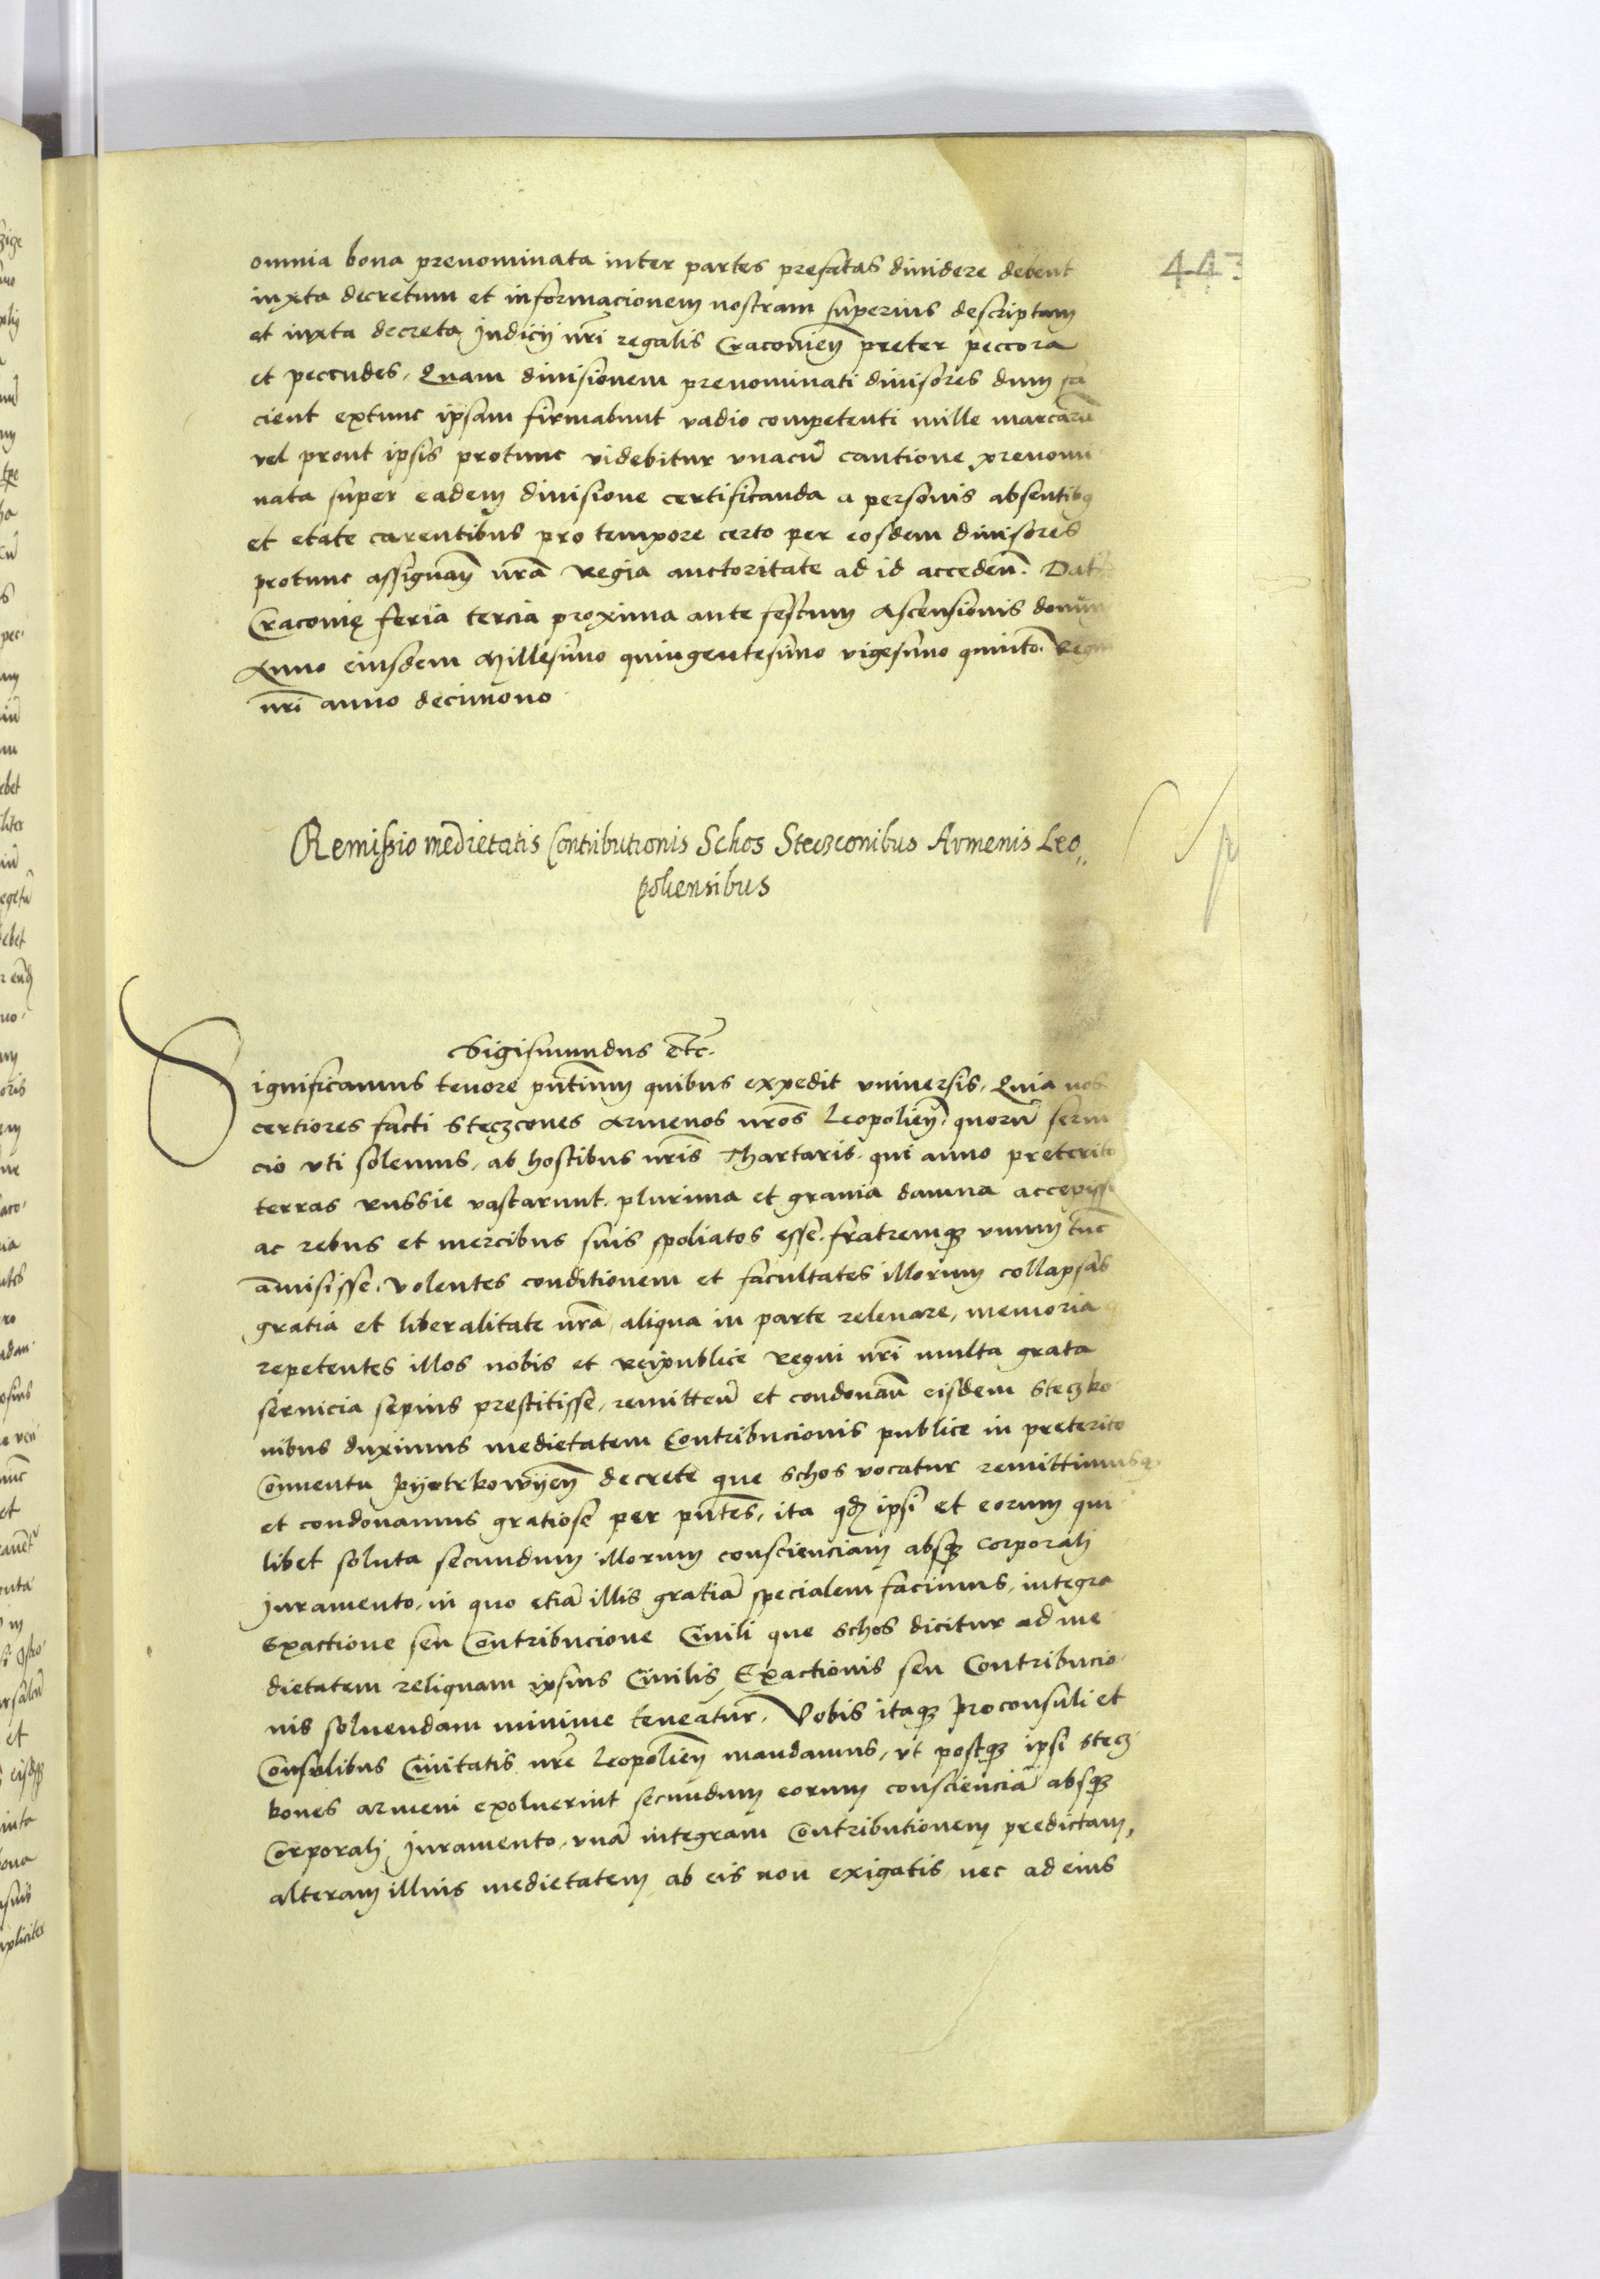 443
omnia bona prenominata inter partes prefatas dividere debent
iuxta decretum et informacionem nostram superius descriptam
et iuxta decreta Judicij nr̄i regalis Cracovień preter peccora
et peccudes, Quam divisionem prenominati divisores dum fa
cient extunc ipsam firmabunt vadio competenti mille marcarū
vel prout ipsis protunc videbitur vnacū cautione prenomi
nata super eadem divisione certificanda a personis absentibq
et etate carentibus pro tempore certo per eosdem divisores
protunc assignań nr̄a Regia auctoritate ad id acceden̄. Dat
Cracovię feria tercia proxima ante festum Ascensionis domini
Anno eiusdem Millesimo quingentesimo vigesimo quinto. Regni
nr̄i anno decimono
Remissio medietatis Contributionis Schos Steczconibus Armenis Leo„
poliensibus
Sigismundus etc̄.
Significamus tenore pn̄tium quibus expedit vniversis, Quia nos
certiores facti Steczcones Armenos nr̄os Leopolień. quorū servi
cio vti solemus, ab hostibus nr̄is Thartaris. qui anno preterito
terras Russie vastarunt. plurima et gravia damna accepisse
ac rebus et mercibus suis spoliatos esse. fratremqȝ vnum tūc
amisisse. Volentes conditionem et facultates illorum collapsas
gratia et liberalitate nr̄a aliqua in parte relevare, memoria
repetentes illos nobis et Reipublice Regni nr̄i multa grata
servicia sepius prestitisse, remitten̄ et condonan̄ eisdem Steczko
nibus duximus medietatem Contribucionis publice in preterito
Conventu Pyotrkowyeń decrete que schos vocatur remittimusqȝ
et condonamus gratiose per pn̄tes, ita qđ ipsi et eorum qui
libet soluta secundum illorum conscienciam absqȝ corporali
Juramento, in quo etiā illis gratiā specialem facimus, integra
Exactione seu Contribucione Civili que schos dicitur ad me
dietatem reliquam ipsius Civilis Exactionis seu Contribucio
nis solvendam minime teneatur, Vobis itaqȝ Proconsuli et
Consulibus Civitatis nr̄e Leopolień mandamus, vt postqȝ ipsi Stecz
kones armeni exolverint secundum eorum conscienciā absqȝ
Corporali Juramento, vnā integram Contributionem predictam,
alteram illius medietatem ab eis non exigatis nec ad eius